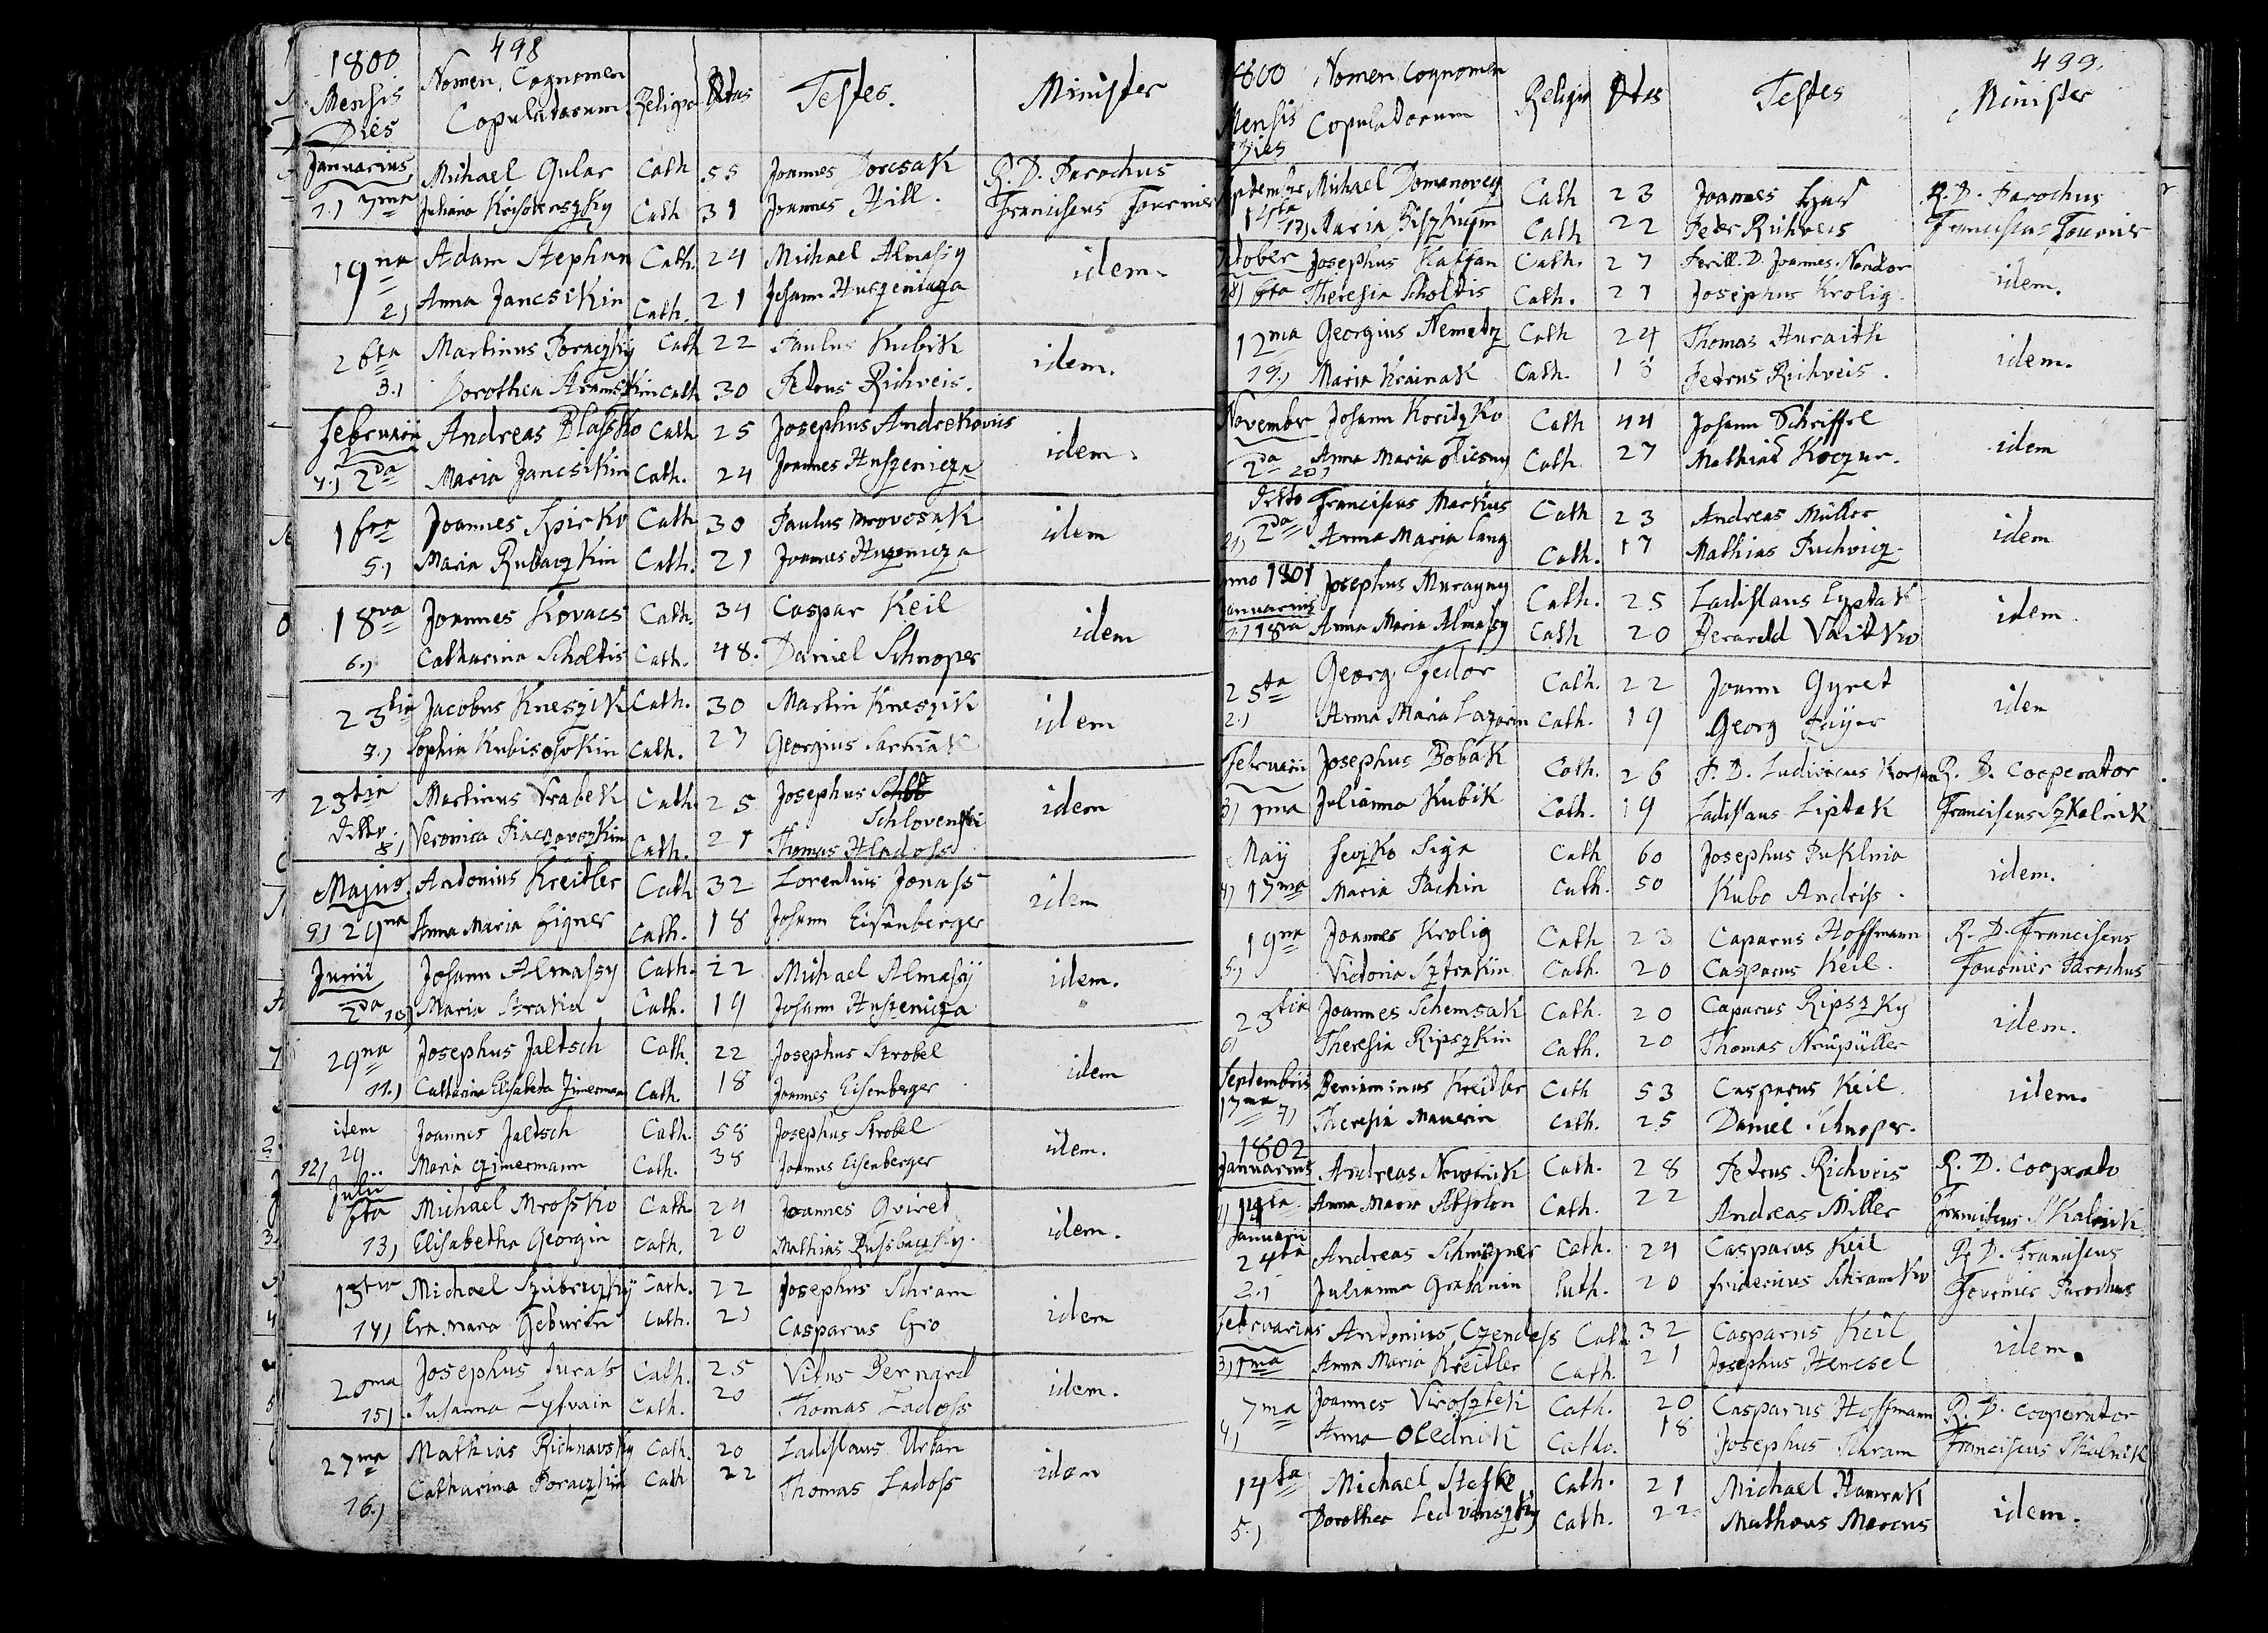 498
1800 Nomen, Cognomen
Mensis Copulatorum Religio Ætas Testes. Minister
Dies
Januarius Michael Gular Cath 55 Joannes Dorcsak R. D. Parochus
1.) 7ma Juliana Cath 31 Joannes Hill. Franciscus Fournier
19na Adam Stephan Cath. 24 Michael Almassy idem.
2) Anna Jancsikin Cath. 21 Johann Huszenicza
26ta Martinus Poraczky Cath 22 Paulus Kubik idem.
3.) Dorothea Cath 30 Petrus Richveis.
Februarii Andreas Blassko Cath 25 Josephus Andrekovits idem.
4.) 2da Maria Jancsikin Cath. 24 Joannes Huszenicza
16ta Joannes Spirko Cath 30 Paulus Mrovosak idem
5.) Maria Rubaczkin Cath. 21 Joannes Huzenicza
18va Joannes Kovacs Cath. 34 Caspar Keil idem
6.) Catharina Scholtis Cath. 48. Daniel Schnoper
23tia Jacobus Kneszik Cath. 30 Martin Kneszik idem
7.) Sophia Cath. 27 Georgius
23tia Martinus Vrabek Cath 25 Josephus Schlovenski idem
Ditto. 8) Veronica Cath. 21 Thomas Hladoss
Majus Antonius Kreitler Cath 32 Lorentius Jonass idem
9) 29na Anna Maria Eigner Cath. 18 Johann Eisenberger
Junii Johann Almassy Cath. 22 Michael Almassÿ idem.
2da 10) Maria Straka Cath. 19 Johann Huszenicza
29na Josephus Jaltsch Cath. 22 Josephus Strobel idem
11.) Catharina Elisabeta Zimerman Cath. 18 Joannes Eisenberger
idem Joannes Jaltsch Cath. 58 Josephus Strobel idem.
12) 29 Maria Czimermann Cath. 38 Joannes Eisenberger
Julii
6ta Michael Mrossko Cath 24 Joannes Gviret idem.
13) Elisabetha Georgin Cath. 20 Mathias
13tia Michael Cath. 22 Josephus Schram idem
14) Eva Maria Geburin Cath. 21 Casparus Gro
20ma Josephus Jurass Cath. 25 Vitus Bernard idem.
15) Susanna Cath. 20 Thomas Ladoss
27ma Mathias Richnavsky Cath. 20 Ladislaus Urban idem
16.) Catharina Poraczkin Cath 22 Thomas Ladoss
499.
1800 Nomen, Cognomen
Mensis Copulatorum Religio Ætas Testes Minister
Dies
Michael Domanovcy Cath 23 Joannes R. D. Parochus
17) Maria Cath 22 Peter Richveis Franciscus Fournier
October Josephus Kaffan Cath. 27 D. Joannes Nandor idem.
18) 6ta Theresia Scholtis Cath. 21 Josephus Krolig.
12ma Georgius Nemetz Cath 24 Thomas Huraith idem.
19.) Maria Krainak Cath. 18 Petrus Richveis.
November Johann Koritzko Cath 44 Johann Schiffel idem
2da 20) Anna Maria Cath 27 Mathias Koczur.
Ditto Franciscus Markus Cath 23 Andreas Müller idem
21) 2da Anna Maria Lang Cath. 17 Mathias Puchvicz.
Anno 1801 Josephus Murayny Cath. 25 Ladislaus Lyptak idem.
Januarius
1.) 18va Anna Maria Almassy Cath 20 Berardd Vaitko
25ta Georg Fedor Cath. 22 Joann Gyret idem
2.) Anna Maria Lazorin Cath. 19 Georg
Februarii Josephus Bobak Cath. 26 P. D. Ludovicus R. D. Cooperator
3) 1ma Julianna Kubik Cath. 19 Ladislaus Liptak Franciscus Szkalnik
Maÿ Seczko Siga Cath 60 Josephus Puklnia idem.
4) 17ma Maria Pachin Cath. 50 Kubo Andriss.
19na Joannes Krolig Cath 23 Caparus Hoffmann R. D. Franciscus
5.) Victoria Sztrakin Cath. 20 Casparus Keil. Fournier Parochus
23tia Joannes Schemsak Cath. 20 Caparus Ripszky idem.
6) Theresia Ripszkin Cath. 20 Thomas
Septembris Beniaminus Kreitler Cath 53 Casparus Keil. idem.
17ma 7) Theresia Maurin Cath. 25 Daniel Schnoper.
1802
Januarius Andreas Novotnik Cath. 28 Petrus Richveis R. D. Cooperato
1) 14ta Anna Maria Absolon Cath. 22 Andreas Miller Franciscus Skalnik
Januarii
24ta Andreas Cath. 24 Casparus Keil R. D. Franciscus
2.) Julianna Luth. 20 Fridericus Schramko Fournier Parochus
Februarius Antonius Czendess Cath 32 Casparus Keil idem.
3) 1ma Anna Maria Kreitler Cath. 21 Josephus Hencsel
7ma Joannes Virosztek Cath. 20 Casparus Hoffmann R. D. Cooperator
4) Anna Olednik Catho. 18 Josephus Schram Franciscus Skalnik
14ta Michael Stefko Cath. 21 Michael Hamrak idem.
5.) Dorothea Ledvinszky Cath. 22 Matheus Marcus